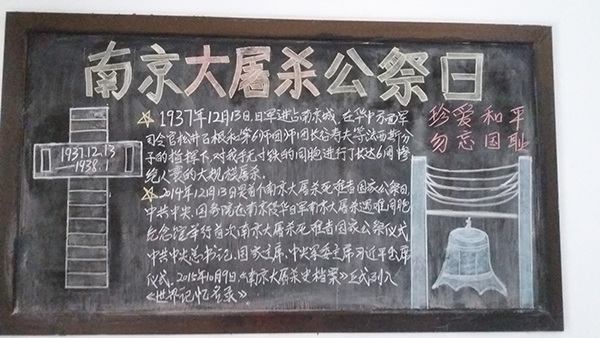 南京大屠杀公祭日
1937.12.13
—1938.1
1937年12月13日,日军进占南京城,在华中方面军
司令官松井石根和第6师团师团长谷寿夫等法西斯分
子的指挥下,对我手无寸铁的同胞进行了长达6周惨
绝人寰的大规模屠杀.
2014年12月13日是首个南京大屠杀死难者国家公祭日,
中共中央、国务院在南京侵华日军南京大屠杀遇难同胞
纪念馆举行首次南京大屠杀死难者国家公祭仪式
中共中央总书记、国家主席、中央军委主席习近平出席
仪式。2015年10月9日,《南京大屠杀史档案》正式列入
《世界记忆名录》
珍爱和平
勿忘国耻